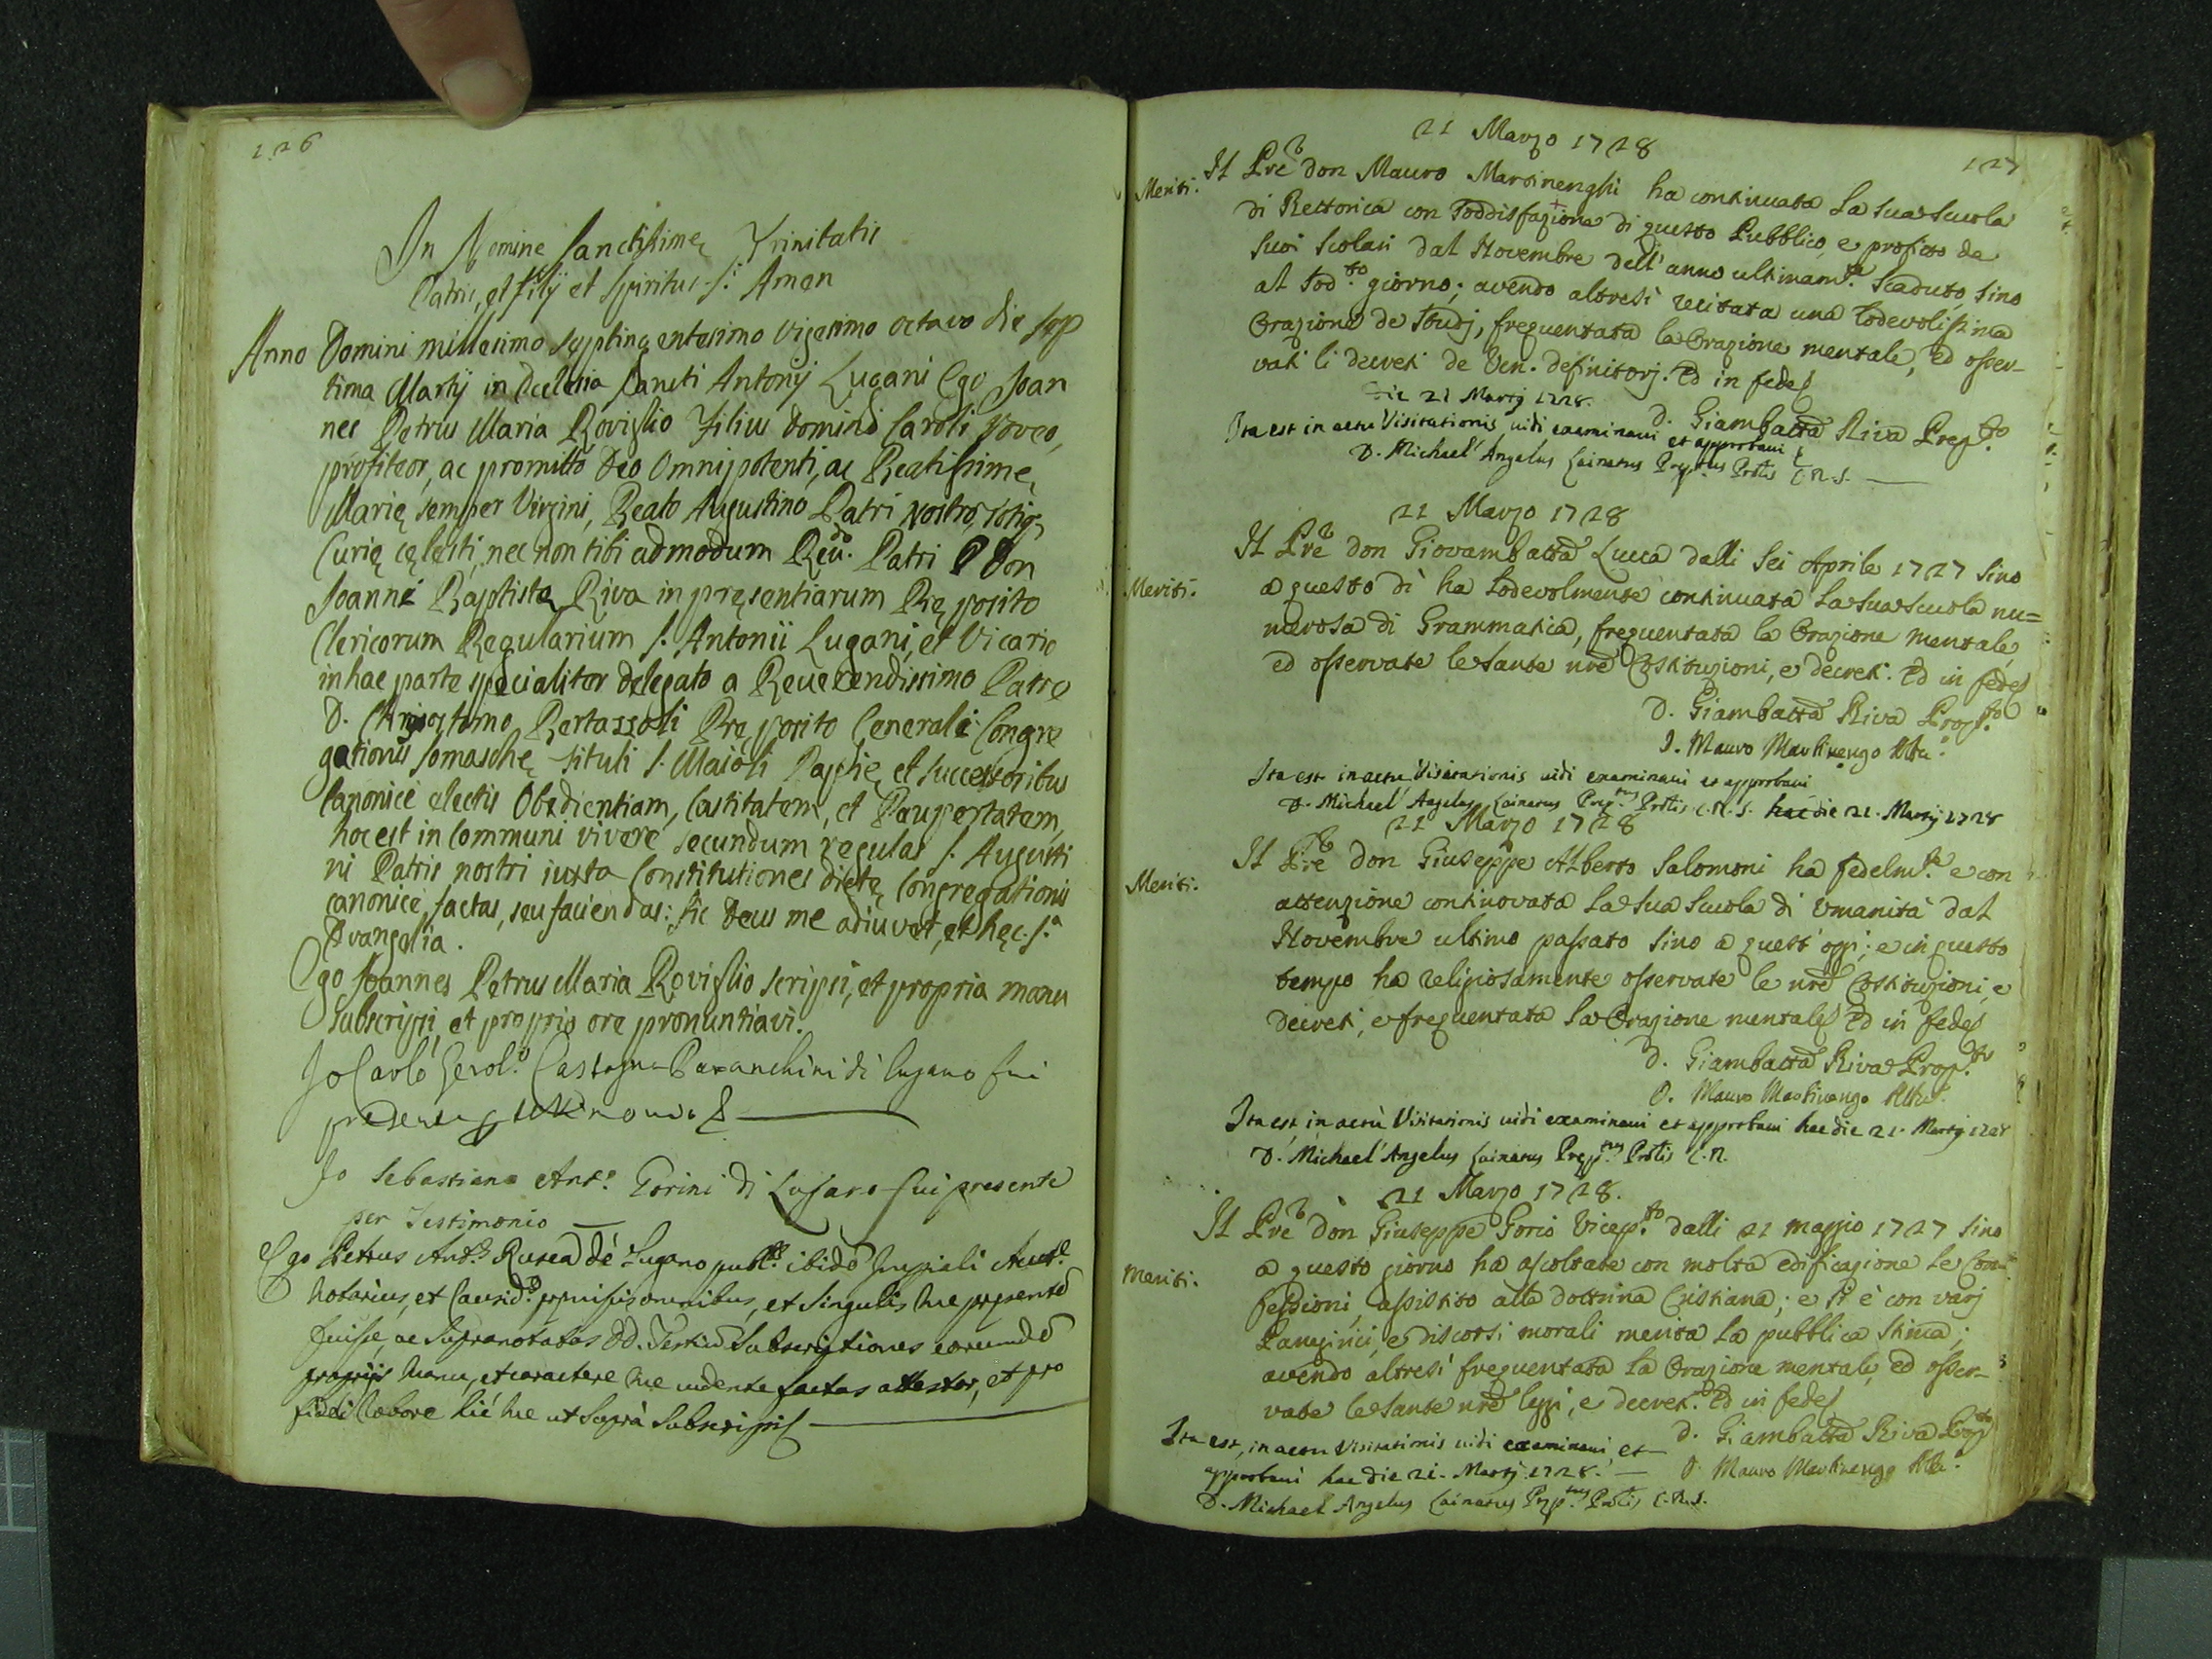 126
In Nomine Sanctissimę Trinitatis
Patris, et Filij et Spiritus S.i Amen
Anno Domini millesimo septingentesimo vigesimo octavo die sep
tima Martij in Ecclesia Sancti Antonij Lugani Ego Joan
nes Petrus Maria Roviglio Filius Domini Caroli voveo,
profiteor, ac promitto Deo Omnipotenti, ac Beatissime,
Marię semper Virgini, Beato Augustino Patri Nostro, totiq;
Curię cęlesti, nec non tibi admodum Reu.do Patri D Don
Joanni Baptistę Riva in pręsentiarum Pręposito
Clericorum Regularium S. Antonii Lugani, et Vicario
in hac parte specialiter delegato a Reuerendissimo Patre
D. Chrisostomo Bertazzoli Pręposito Generali Congre
gationis Somaschę tituli S. Maioli Papię et successoribus
canonicè electis Obedientiam, Castitatem, et Paupertatem,
hoc est in Communi vivere secundum regulas S. Augusti
ni Patris nostri iuxta Constitutiones dictę Congregationis
canonicè factas, seu faciendas: sic Deus me adiuvet, et hęc S.a
Evangelia.
Ego Joannes Petrus Maria Roviglio scripsi, et propria manu
subscripsi, et proprio ore pronuntiavi.
Jo Carlo Gerol.o Castagna Bavanchini di lugano fui
presente
Jo Sebastiano Ant.o Gorini di Lugano fui presente
per Testimonio
Ego Petrus Ant.s Rusca de Lugano publ.s ibidẽ Imperiali Auct.e
Notarius, et Causid.s premissis omnibus, et singulis me presente
fuisse, ac supranotatas DD. Testiũ Subscriptiones eorumdẽ
proprijs manu, et caractere me uidente factas attestor, et pro
fidei robore hic me ut suprà Subscripsi
127
21 Marzo 1728
Meriti.
Il Pre don Mauro Martinenghi ha continuata la sua scuola
di Rettorica con soddisfazione di questo Pubblico, e profitto de
suoi Scolari dal Novembre dell'anno ultimam.te scaduto sino
al sod.to giorno; avendo altresì recitata una lodevolissima
Orazione de Studj, frequentata la Orazione mentale, ed osser-
vati li decreti de Ven. definitorj. Ed in fede
D. Giambatta Riva Prep.to
Die 21 Martij 1728.
Ita est in actu Visitationis uidi examinaui et approbaui
D. Michael Angelus Cainarus Prep.tus Prãlis C.R.S.
21 Marzo 1728
Meriti.
Il Pre don Giovambatta Lucca dalli sei Aprile 1727 sino
a questo dì ha lodevolmente continuata la sua scuola nu=
merosa di Grammatica, frequentata la Orazione mentale
ed osservate le sante nre Costituzioni, e decreti. Ed in fede
D. Giambatta Riva Prop.to
D. Mauro Martinengo Attu.o
Ita est in actu Visitationis uidi examinaui et approbaui
D. Michael Angelus Cainarus Prep.tus Prãlis C.R.S. hac die 21. Martij 1728
21 Marzo 1728
Meriti.
Il Pre don Giuseppe Alberto Salomoni ha fedelm.te e con
attenzione continovata la sua scuola di Umanità dal
Novembre ultimo passato sino a quest'oggi; e in questo
tempo ha religiosamente osservate le nre Costituzioni, e
decreti, e frequentata la Orazione mentale Ed in fede
D. Giambatta Riva Prop.to
D. Mauro Martinengo Attu.o
Ita est in actù Visitationis uidi examinaui et approbaui hac die 21. Martij 1728
D. Michael Angelus Cainarus Prep.tus Prãlis C.R.
21 Marzo 1728.
Meriti.
Il Pre don Giuseppe Gorio Vicep.to dalli 21 maggio 1727 sino
a questo giorno ha ascoltate con molta edificazione le Con-
fessioni, assistito alla dottrina Cristiana; e si è con varj
Panegirici, e discorsi morali merita la pubblica stima;
avendo altresì frequentata la Orazione mentale, ed osser-
vate le sante nre leggi, e decreti. Ed in fede
D. Giambatta Riva Prop.to
D. Mauro Martinengo Attu.o
Ita est, in actu Visitationis uidi examinaui, et
approbaui hac die 21. Martij 1728.
D. Michael Angelus Cainarus Prep.tus Prãlis C.R.S.